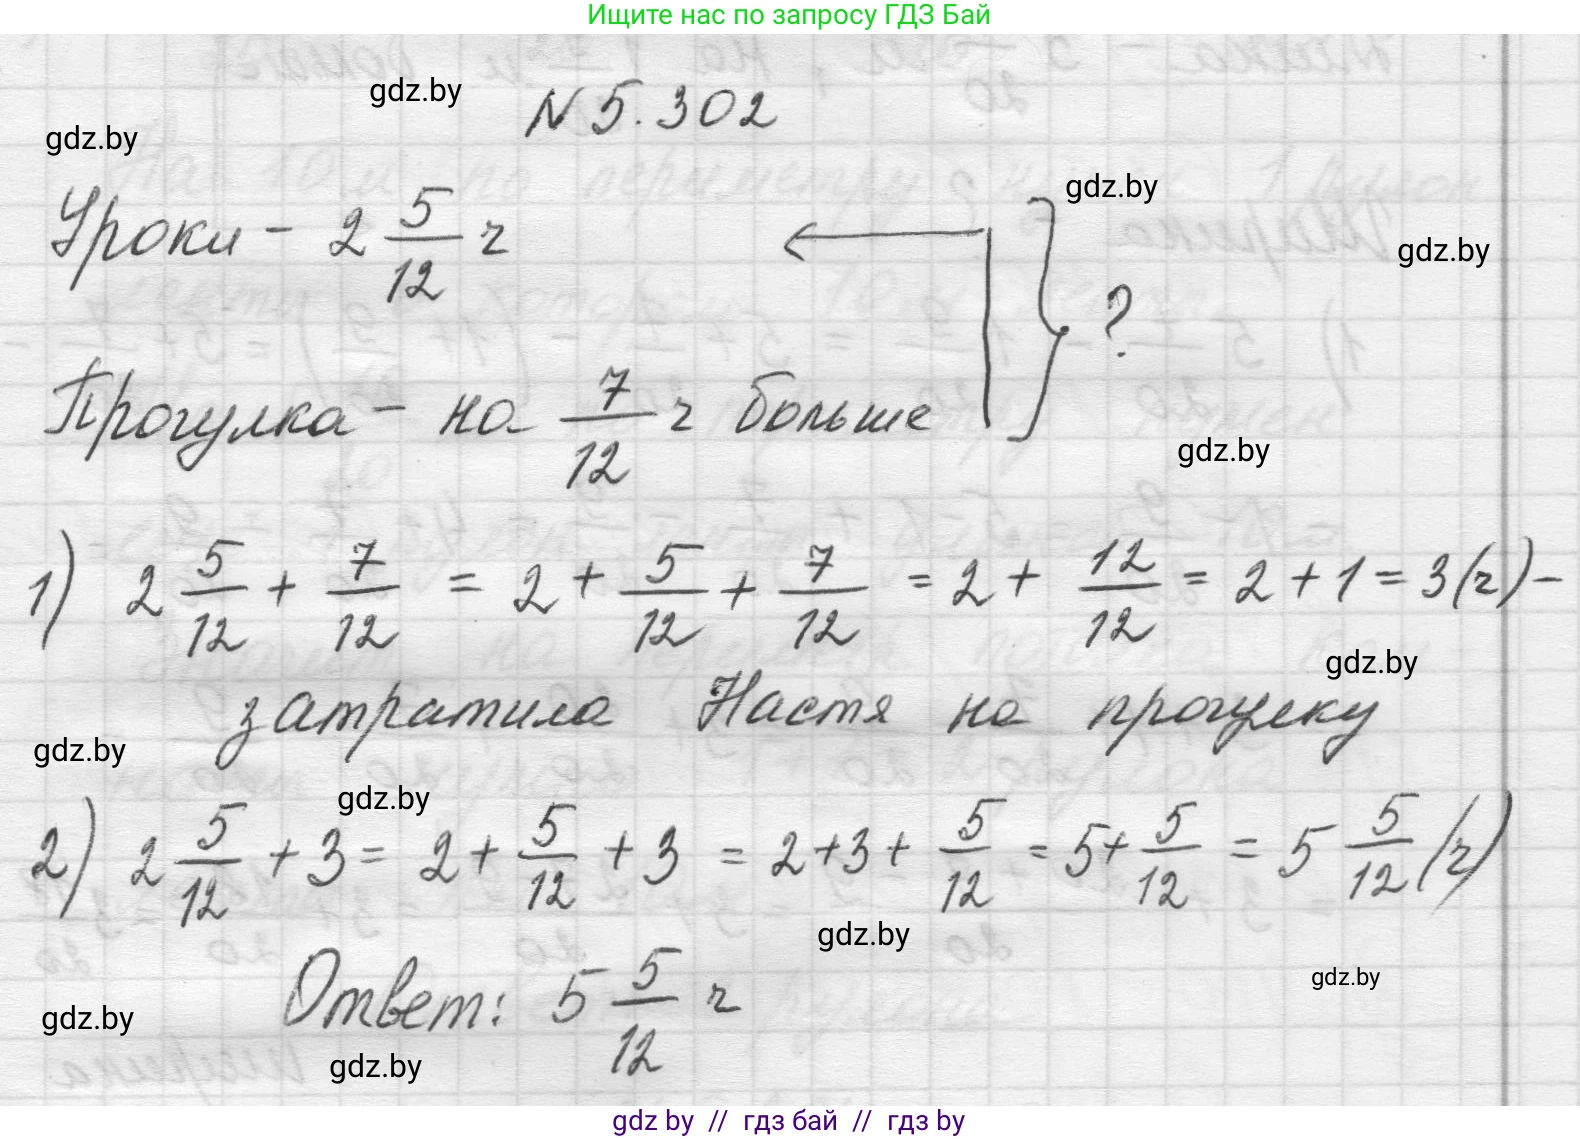 Ищите нас по запросу ГДЗ Бай
gdz.by
№ 5.302
gdz.by
gdz.by
Уроки - 2 5/12 ч
gdz.by
?
Прогулка - на 7/12 ч больше
gdz.by
1) 2 5/12 + 7/12 = 2 + 5/12 + 7/12 = 2 + 12/12 = 2 + 1 = 3 (ч) -
gdz.by
затратила Настя на прогулку
gdz.by
gdz.by
2) 2 5/12 + 3 = 2 + 5/12 + 3 = 2 + 3 + 5/12 = 5 + 5/12 = 5 5/12 (ч)
gdz.by
Ответ: 5 5/12 ч
gdz.by
gdz.by
gdz.by
gdz by // гдз бай // гдз by